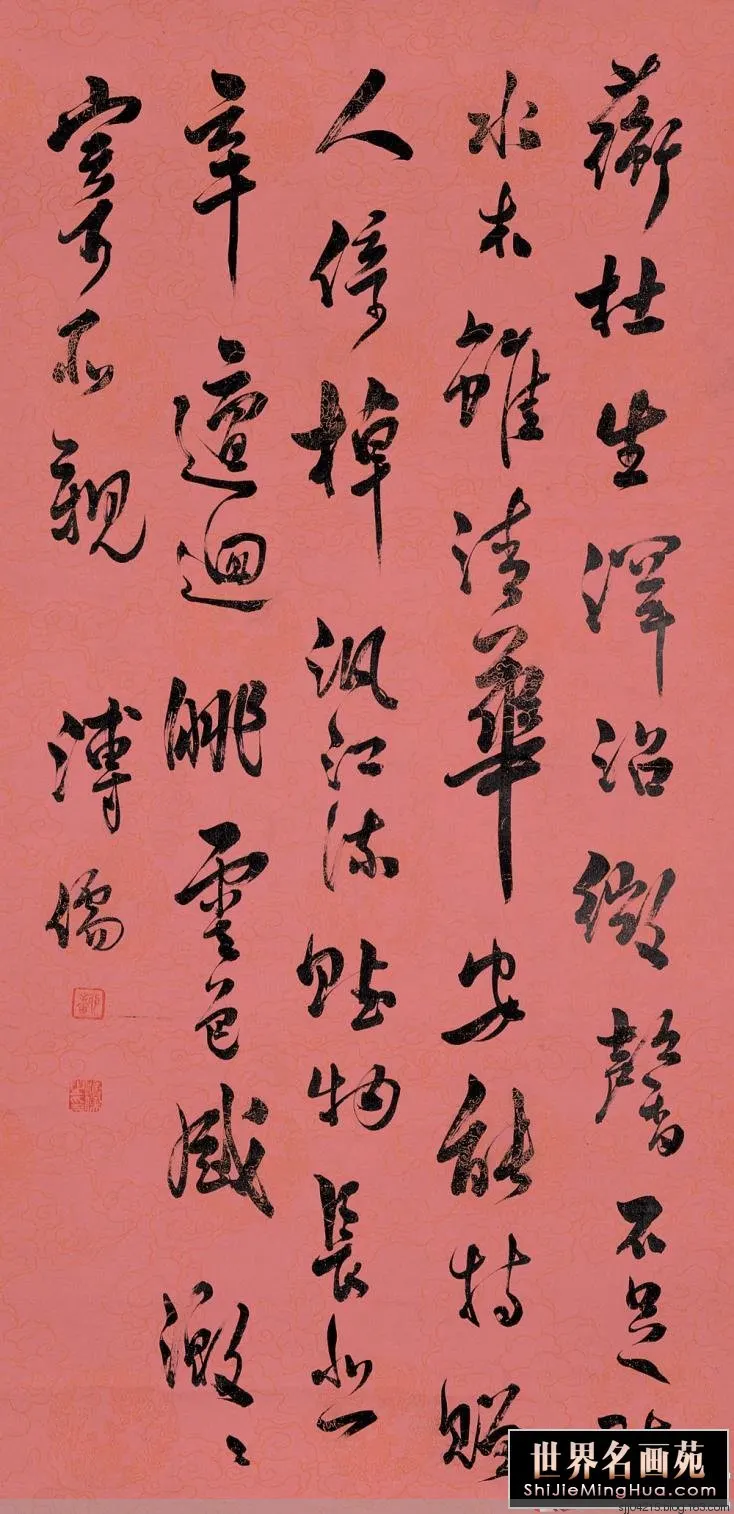 蘅杜生澤沼微馨不足
水木雖清華安能持贈
人停棹汎江流貽物長悲
辛邅迴眺雲色感激
寄所親
溥儒
世界名画苑
ShiJieMingHua.com
sjj04215.blog.163.com